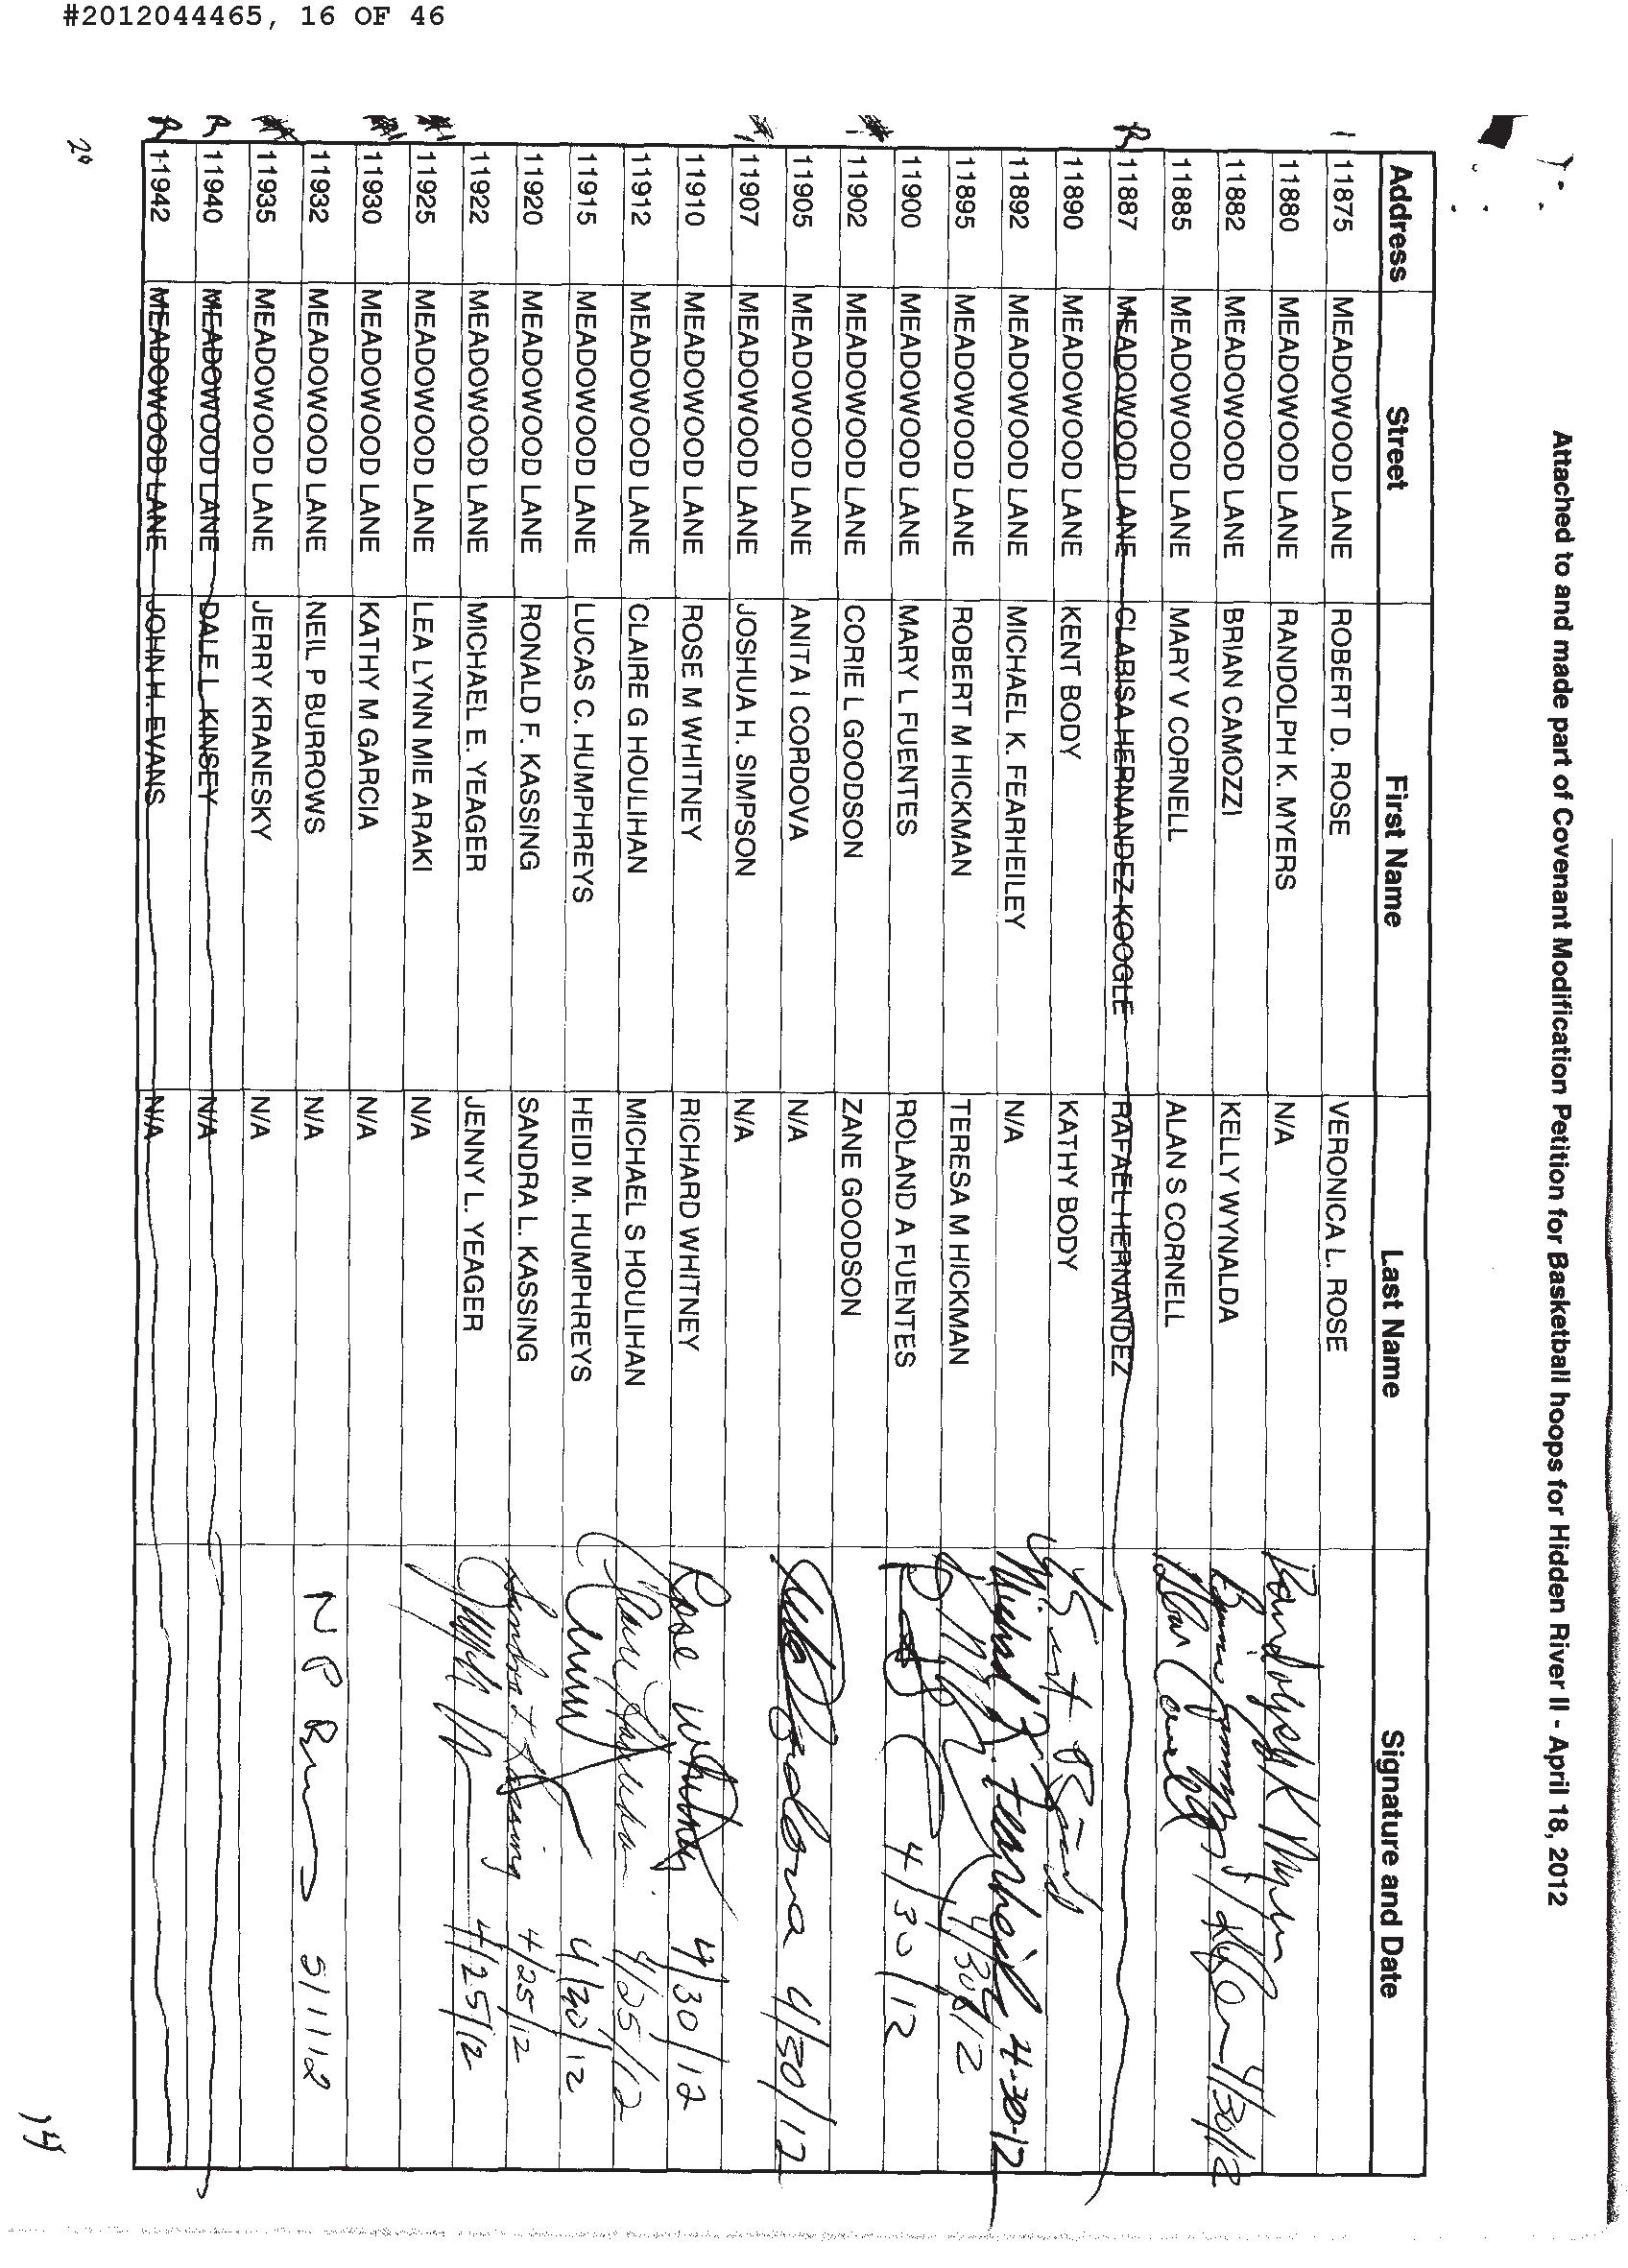 #2012044465, 16 OF 46
Attached to and made part of Covenant Modification Petition for Basketball hoops for Hidden River II - April 18, 2012
Address Street First Name Last Name Signature and Date
1 11875 MEADOWOOD LANE ROBERT D. ROSE VERONICA L. ROSE
11880 MEADOWOOD LANE RANDOLPH K. MYERS N/A Randolph K Myers
11882 MEADOWOOD LANE BRIAN CAMOZZI KELLY WYNALDA 4/30/12
11885 MEADOWOOD LANE MARY V CORNELL ALAN S CORNELL Alan Cornell
R 11887 MEADOWOOD LANE CLARISA HERNANDEZ-KOOGLE RAFAEL HERNANDEZ
11890 MEADOWOOD LANE KENT BODY KATHY BODY Kent Body
11892 MEADOWOOD LANE MICHAEL K. FEARHEILEY N/A Michael K. Fearheiley 4-30-12
11895 MEADOWOOD LANE ROBERT M HICKMAN TERESA M HICKMAN 4/30/12
11900 MEADOWOOD LANE MARY L FUENTES ROLAND A FUENTES 4/30/12
11902 MEADOWOOD LANE CORIE L GOODSON ZANE GOODSON
11905 MEADOWOOD LANE ANITA I CORDOVA N/A Anita Cordova 4/30/12
11907 MEADOWOOD LANE JOSHUA H. SIMPSON N/A
11910 MEADOWOOD LANE ROSE M WHITNEY RICHARD WHITNEY Rose Whitney 4/30/12
11912 MEADOWOOD LANE CLAIRE G HOULIHAN MICHAEL S HOULIHAN Claire Houlihan 4/25/12
11915 MEADOWOOD LANE LUCAS C. HUMPHREYS HEIDI M. HUMPHREYS 4/30/12
11920 MEADOWOOD LANE RONALD F. KASSING SANDRA L. KASSING Sandra L Kassing 4/25/12
11922 MEADOWOOD LANE MICHAEL E. YEAGER JENNY L. YEAGER 4/25/12
11925 MEADOWOOD LANE LEA LYNN MIE ARAKI N/A
11930 MEADOWOOD LANE KATHY M GARCIA N/A
11932 MEADOWOOD LANE NEIL P BURROWS N/A N P 5/1/12
11935 MEADOWOOD LANE JERRY KRANESKY N/A
R 11940 MEADOWOOD LANE DALE L. KINSEY N/A
R 11942 MEADOWOOD LANE JOHN H. EVANS N/A
20
14